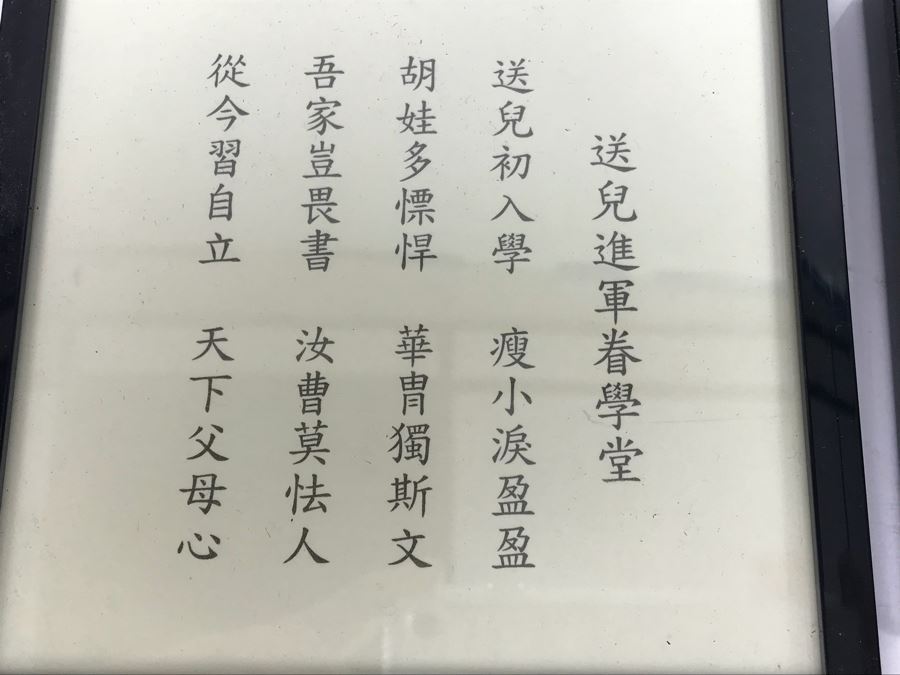 送兒進軍眷學堂
送兒初入學 瘦小淚盈盈
胡娃多慓悍 華胄獨斯文
吾家豈畏書 汝曹莫怯人
從今習自立 天下父母心